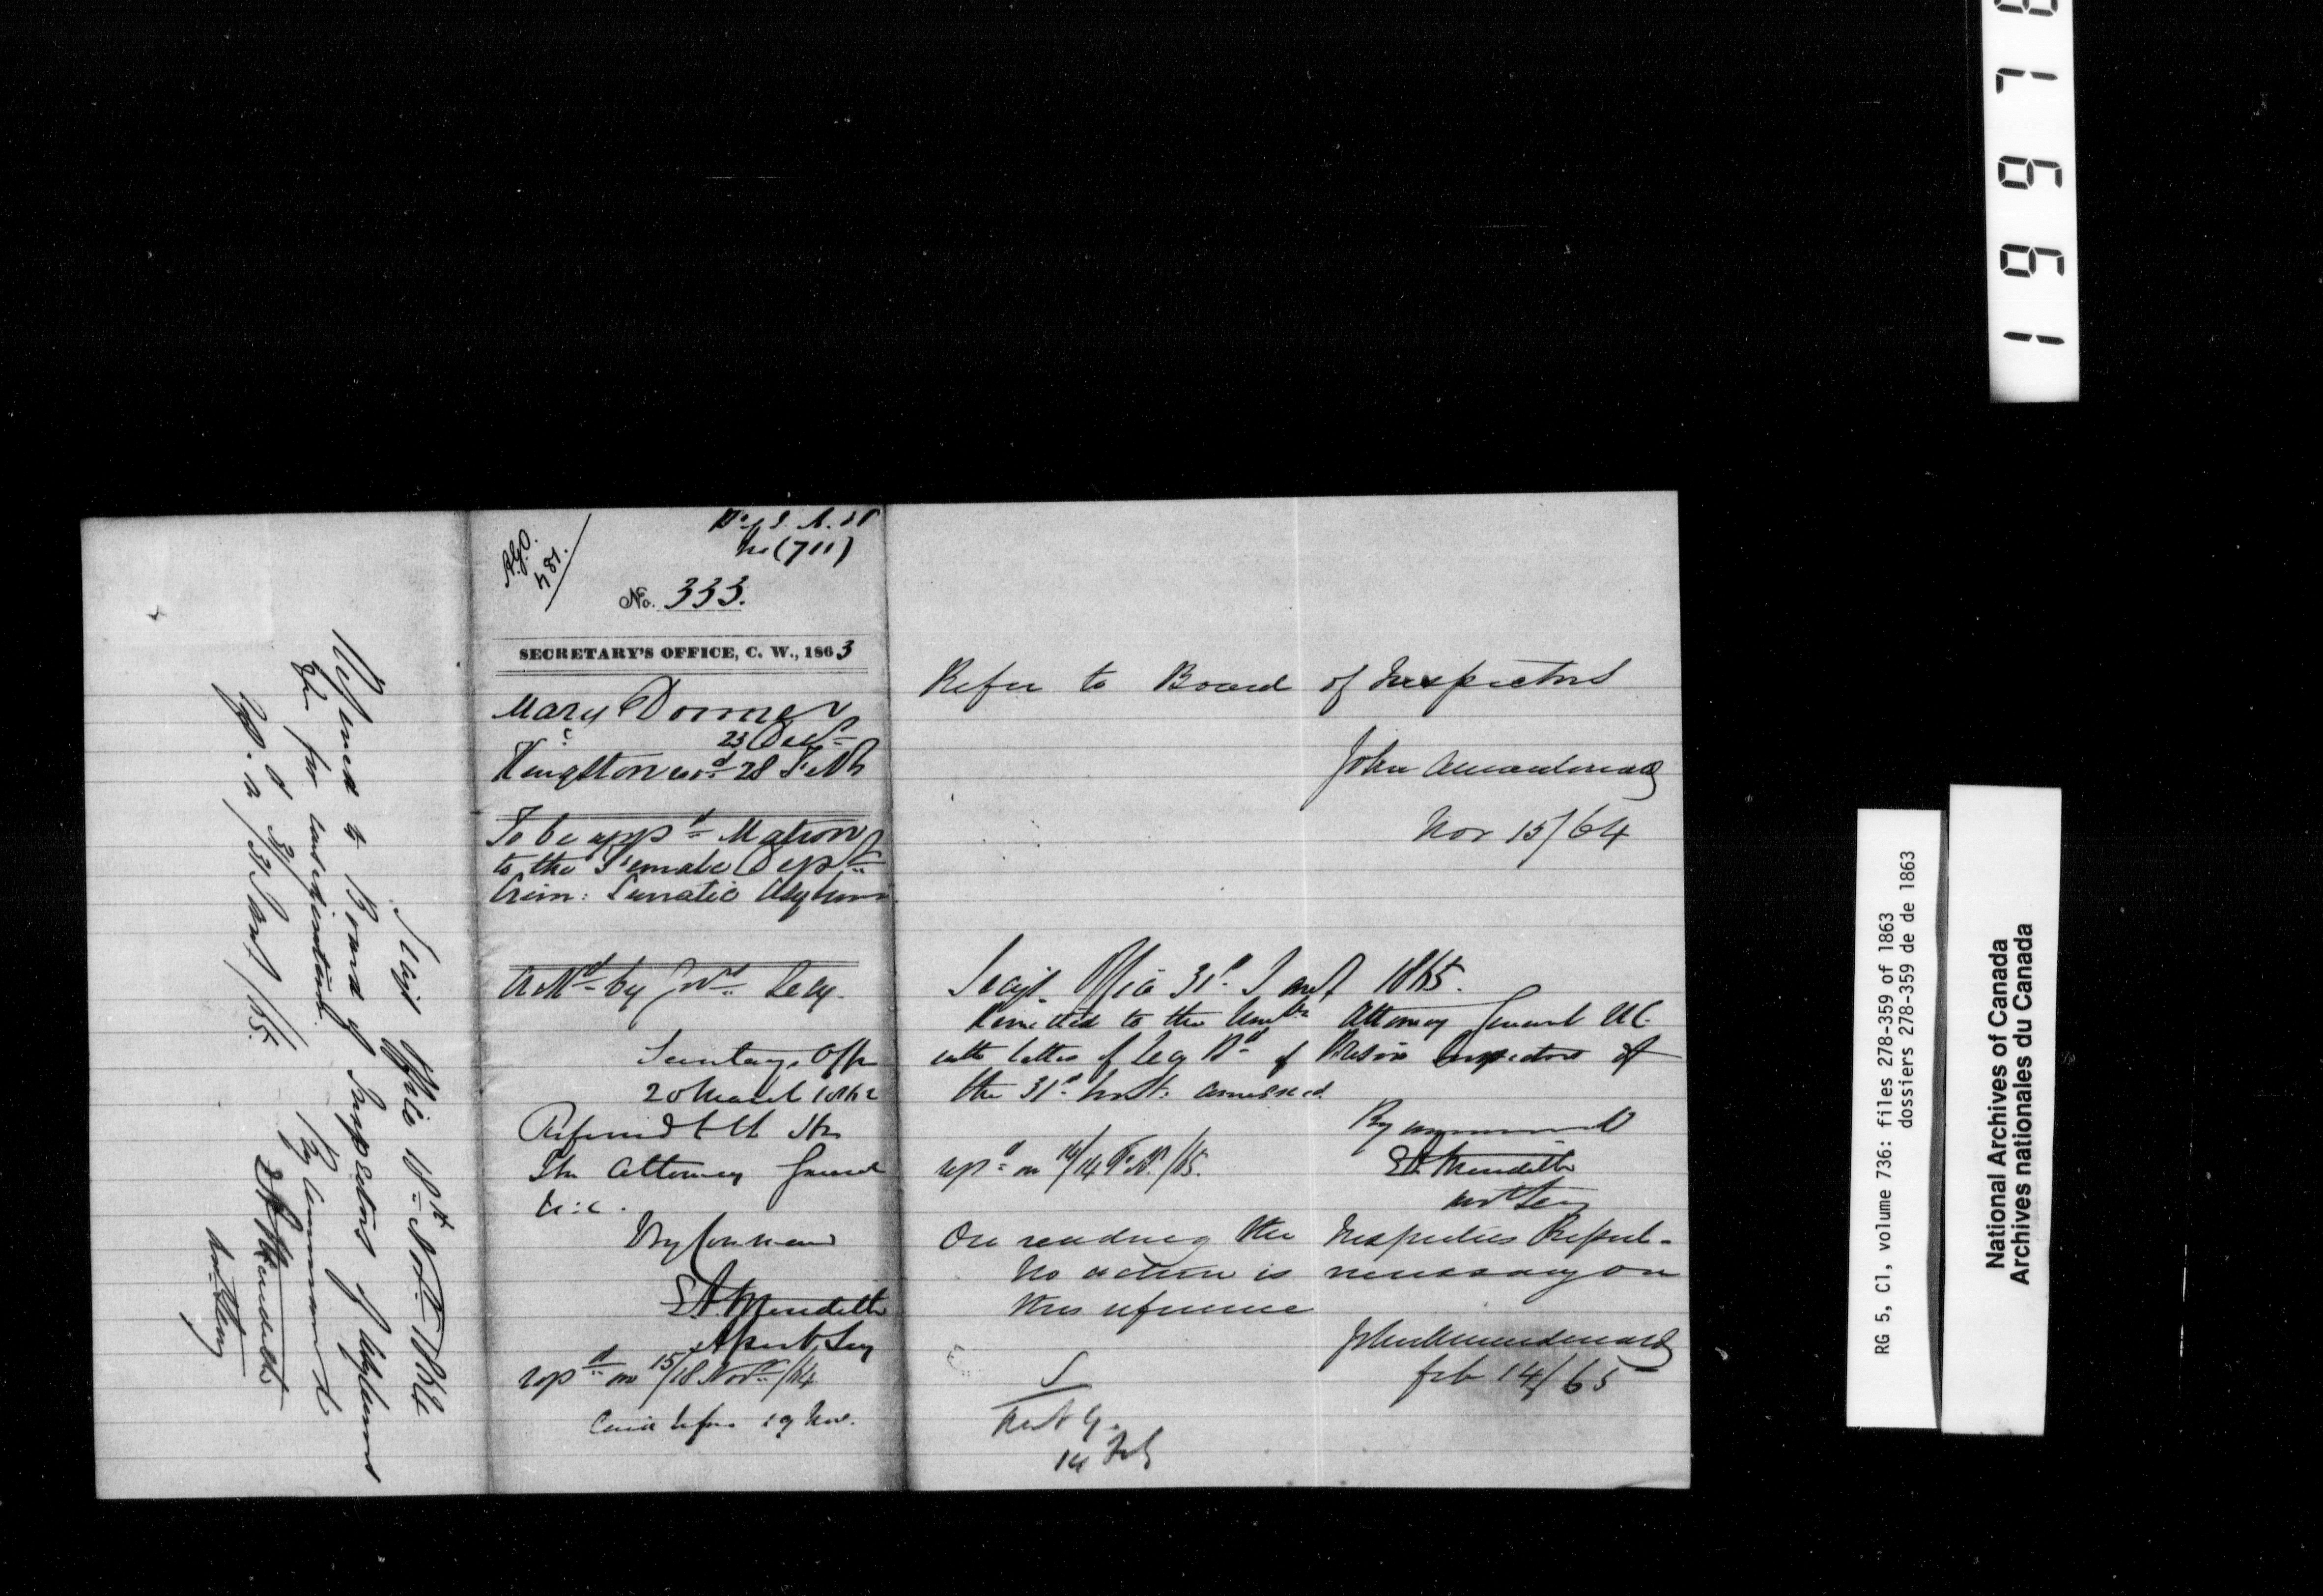 A.G.O.
481.
No (711)
No. 333.
SECRETARY'S OFFICE, C. W., 1863
Mary Donner
23 Decr
Kingston recd 28 Feb
To be appd Matron
to the Female Dept
Crim: Lunatic Asylum
Ackd by Prov Secy.
Secretary's Offi
20 March 186
Referred to the Hon
The Attorney General
U:C.
By Command
E A Meredith
Asst Secy
repd on 15/18 Novr /64
19 Nov.
Secy's Office 18th Novr 1864
Referred to Board of Inspectors of Asylums
&c for consideration.
By Command
E A Meredith
Asst Secy
Repd 31/31 Jany /65.
Refer to Board of Inspectors
John A Macdonald
Nov 15/64
Secy's Office 31st Jany 1865.
Remitted to the Honble Attorney General UC
with letter of Secy Bd of Prison Inspectors of
the 31st Inst: annexed
By command
E A Meredith
Asst Secy
repd on 14/14 Feb /65.
On reading the Inspectors Report -
No action is necessary on
this reference
John A Macdonald
feb 14/65
14 Feb
RG 5, C1, volume 736: files 278-359 of 1863
dossiers 278-359 de de 1863
National Archives of Canada
Archives nationales du Canada